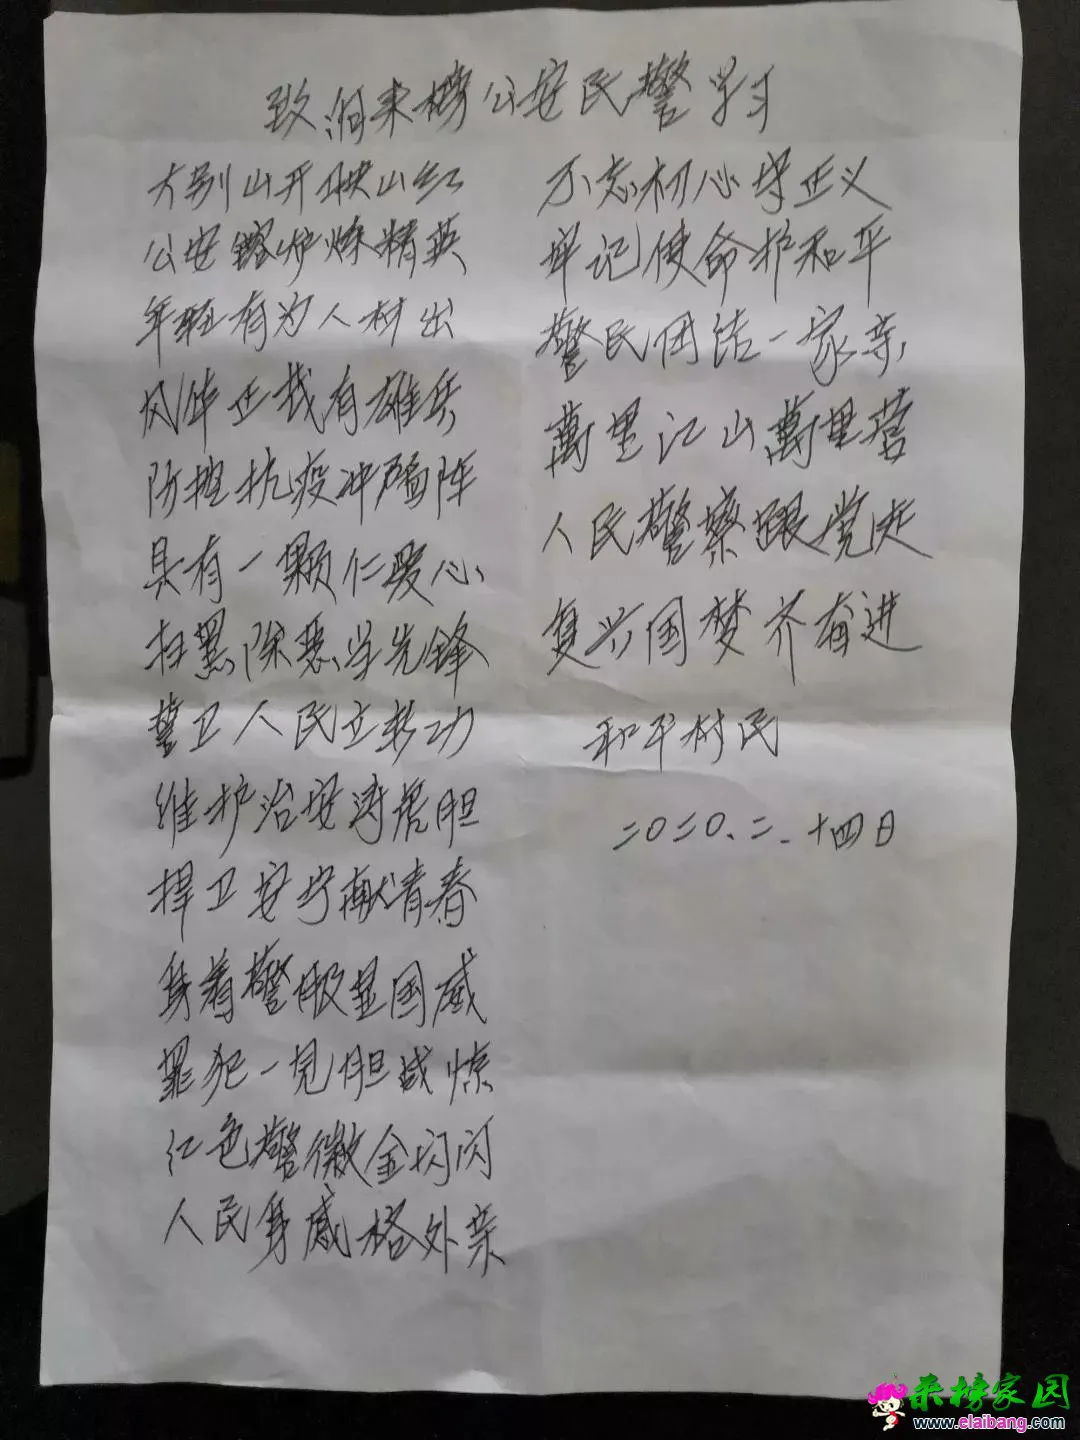 致向来榜公安民警学习
大别山开映山红
公安鎔炉炼精英
年轻有为人材出
风华正茂有雄兵
防控抗疫冲疆阵
具有一颗仁爱心
扫黑除恶学先锋
警卫人民立新功
维护治安涛居胆
捍卫安宁献青春
身着警服显国威
罪犯一见胆战惊
红色警徽金闪闪
人民身感格外亲
不忘初心守正义
牢记使命护和平
警民团结一家亲
萬里江山萬里营
人民警察跟党走
复兴国梦齐奋进
和平村民
二〇二〇.二.十四日
来榜家园
www.elaibang.com